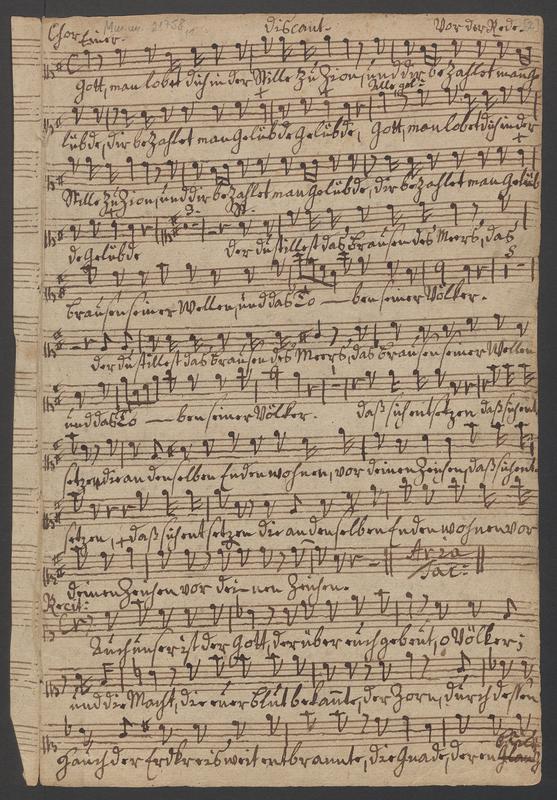 Chor Einer. Mus. ms. 21758 Discant. Vor der Rede.
Gott, man lobet dich in der Stille zu Zion, und dir bezahlet man ge
lübde, dir bezahlet man gelübde gelübde, Gott, man lobet dich in der
Stille zu Zion, und dir bezahlet man gelübde, dir bezahlet man gelüb
de gelübde der du stillest das brausen des Meers, das
brausen seiner Wellen, und das To — ben seiner Völker.
der du stillest das brausen des Meers, das brausen seiner Wellen
und das To — ben seiner Völker. daß sich entsetzen daß sich ent
setzen, die an denselben Enden wohnen, vor deinen Zeichen, daß sich ent
setzen, daß sich entsetzen die an denselben Enden wohnen vor
deinen Zeichen vor dei — nen Zeichen.
Aria
tac:
Recit:
Auch unser ist der Gott, der über euch gebeut, o Völker;
und die Macht, die euer blut bekañte, der Zorn, durch dessen
hauch der Erdkreis weit entbrannte, die Gnade, deren